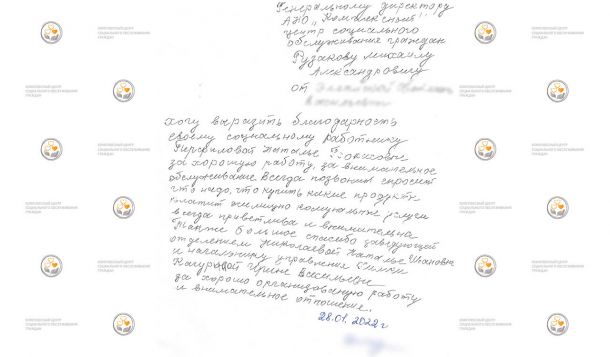 Генеральному директору
АНО "Комплексный
центр социального
обслуживания граждан
Рузакову Михаилу
Александровичу
от
Хочу выразить благодарность
своему социальному работнику
Наталье Борисовне
за хорошую работу, за внимательное
обслуживание всегда позвонит спросит
что надо, что купить какие продукты
платит жилищно комунальные услуги
всегда приветлива и внимательна
Также большое спасибо заведующей
отделением Николаевой Наталье Ивановне
и начальнику управления
Ирине Васильевне
за хорошо организованую работу
и внимательное отношение.
28.01.2022г
КОМПЛЕКСНЫЙ ЦЕНТР
СОЦИАЛЬНОГО ОБСЛУЖИВАНИЯ
ГРАЖДАН